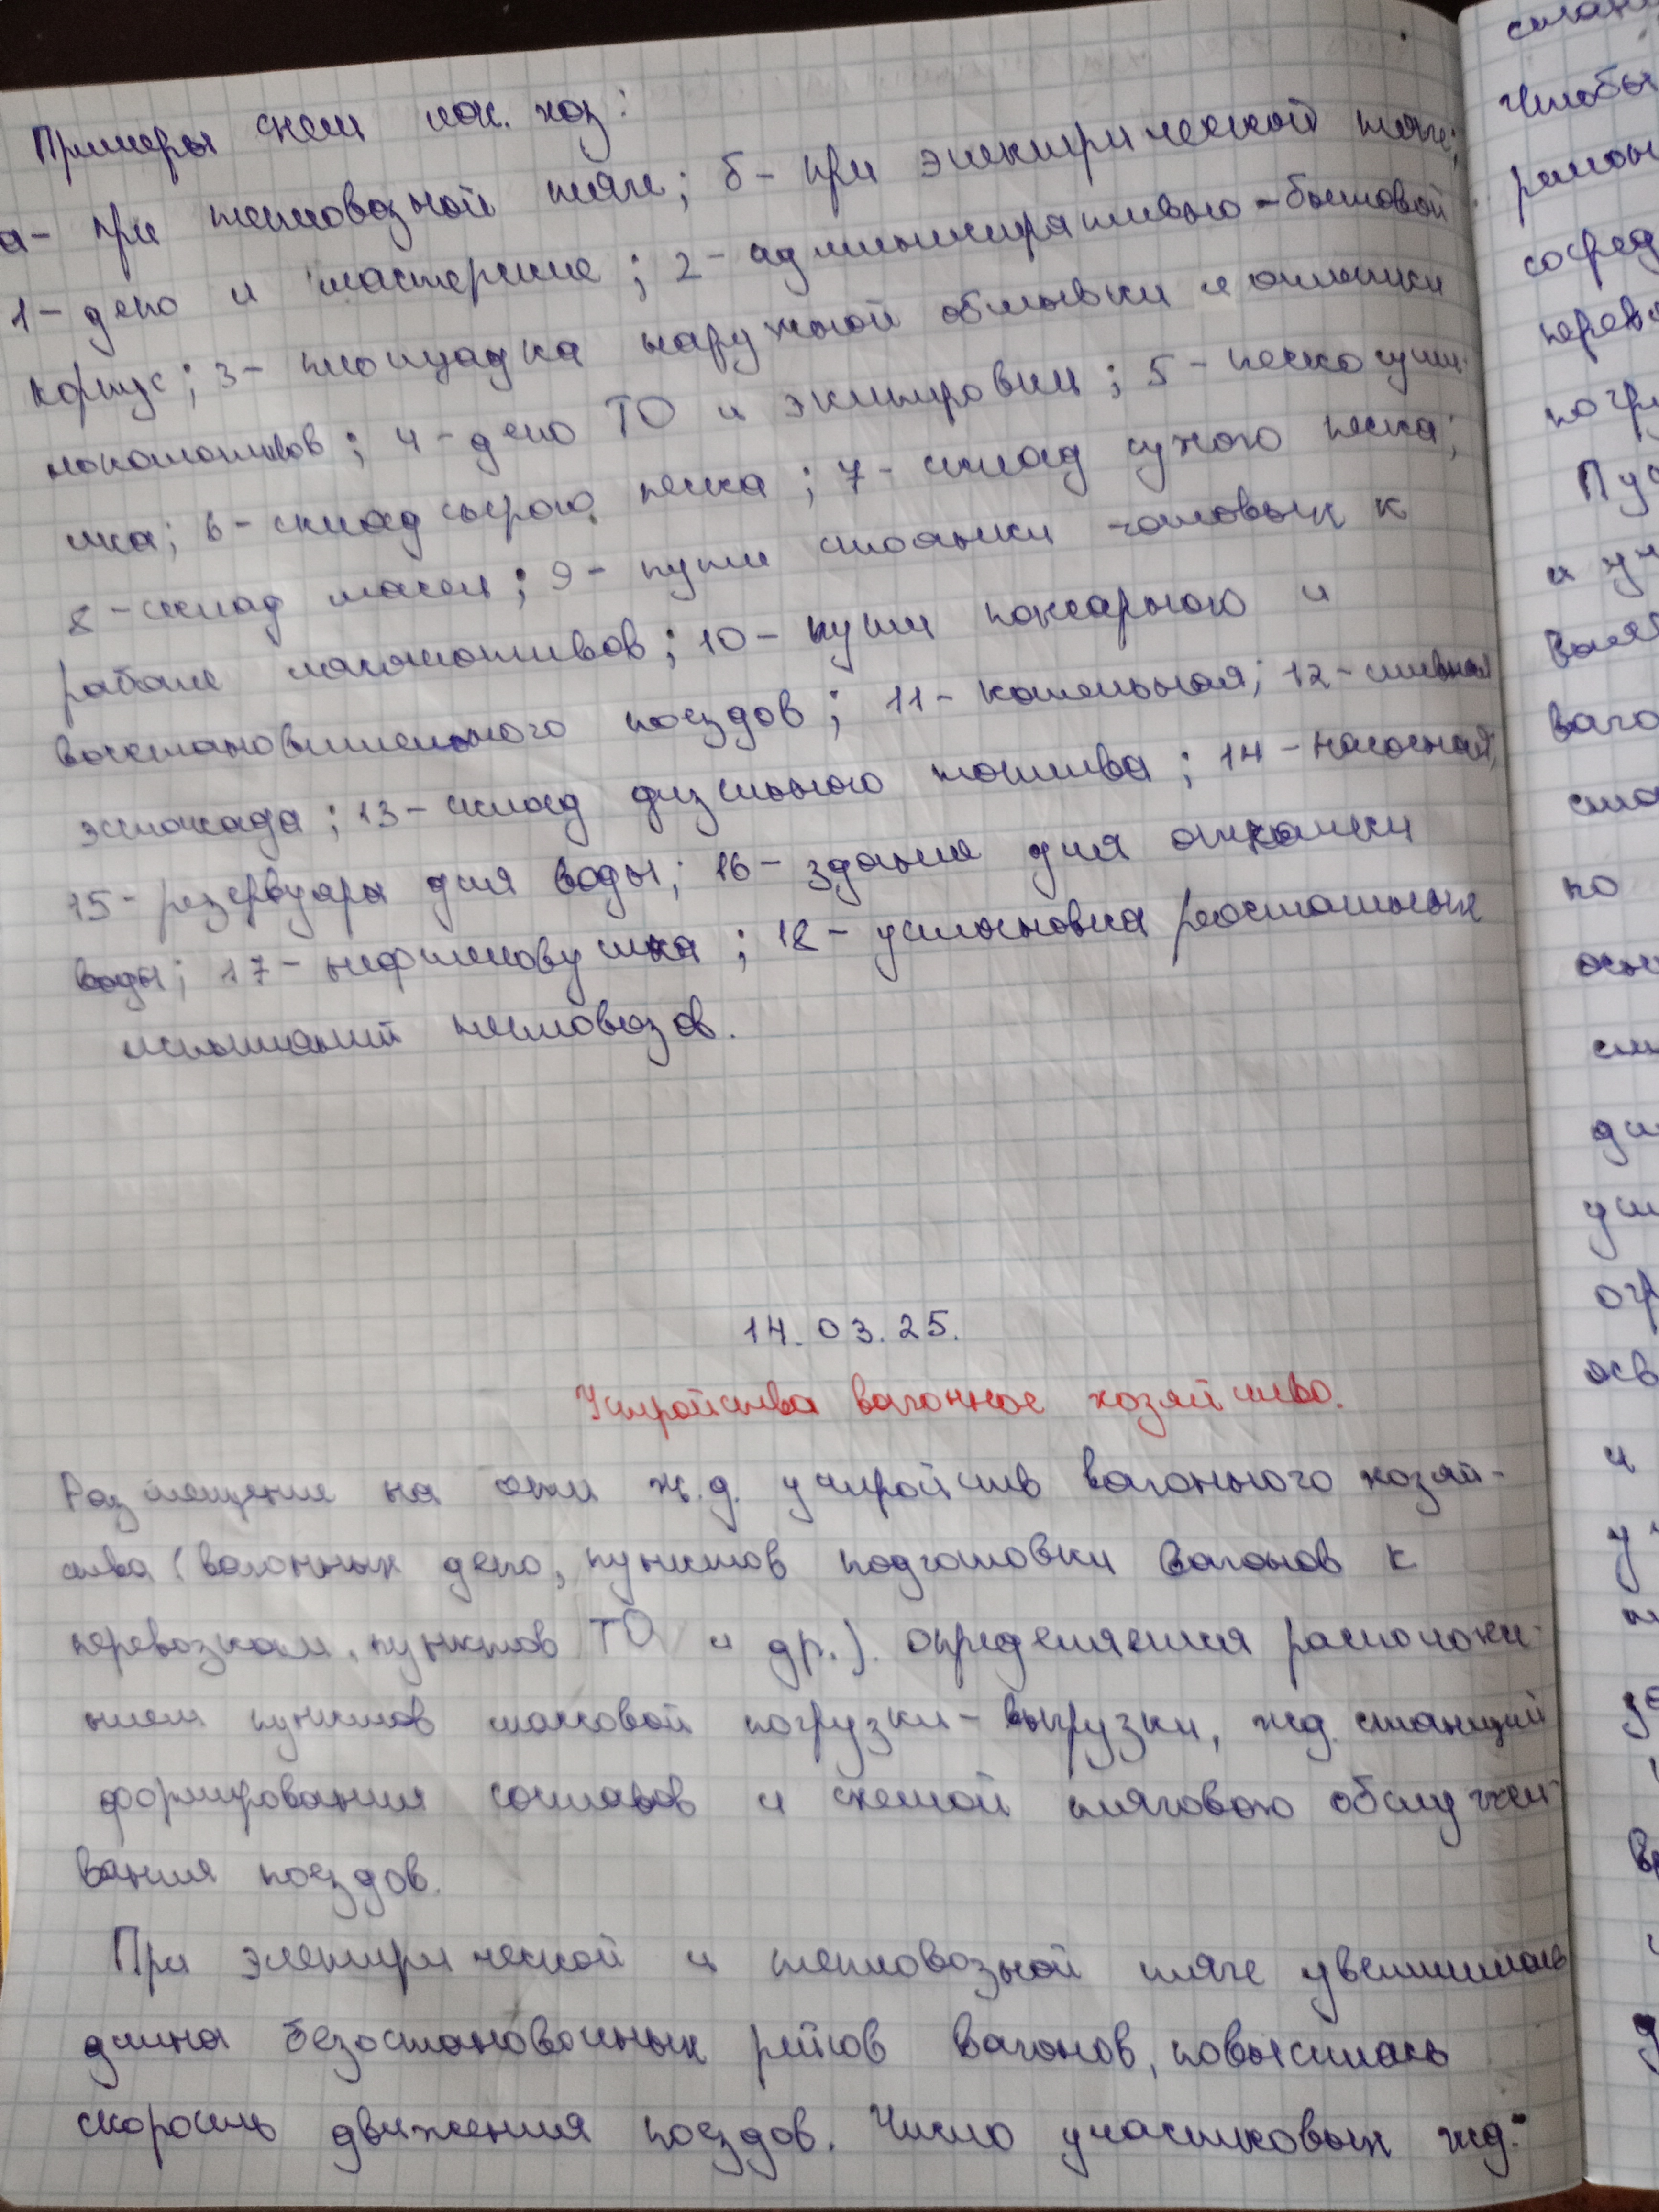 Примеры схем лок. хоз:
а- при тепловозной тяге; б- при электрической тяге;
1- депо и мастерские; 2- административно-бытовой
корпус; 3- площадка наружной обмывки и очистки
локомотивов; 4- депо ТО и экипировки; 5- пескосуши-
лка; 6- склад сырого песка; 7- склад сухого песка;
8- склад масел; 9- пути стоянки готовых к
работе локомотивов; 10- пути пожарного и
восстановительного поездов; 11- котельная; 12- сливная
эстакада; 13- склад дизельного топлива; 14- насосная;
15- резервуары для воды; 16- здание для откачки
воды; 17- нефтеловушка; 18- установка реостатных
испытаний тепловозов.
14.03.25.
Устройства вагонное хозяйство.
Размещение на сети ж.д. устройств вагонного хозяй-
ства (вагонных депо, пунктов подготовки вагонов к
перевозкам, пунктов ТО и др.). определяется расположе-
нием пунктов массовой погрузки-выгрузки, жд. станций
формирования составов и схемой тягового обслужи-
вания поездов.
При электрической и тепловозной тяге увеличилась
длина безостановочных рейсов вагонов, повысилась
скорость движения поездов. Число участковых жд.
Чтобы
район
сосред
перево
погру
Пус
ваго
ста
по
и